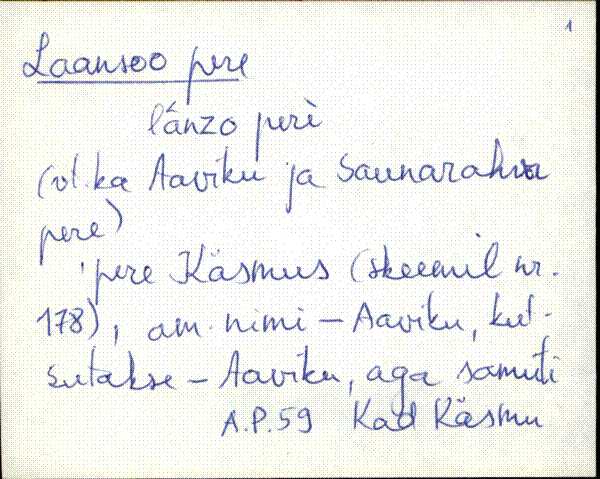 1
Laansoo pere
lánzo perè
(vt. ka Aaviku ja Saunarahva
pere)
'pere Käsmus (skeemil nr.
178), am. nimi – Aaviku, kut-
sutakse – Aaviku, aga samuti
A.P. 59 Kad Käsmu